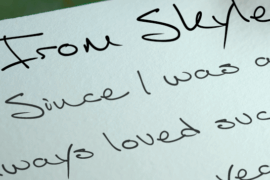 From Skyle
Since I was a
ways loved suc